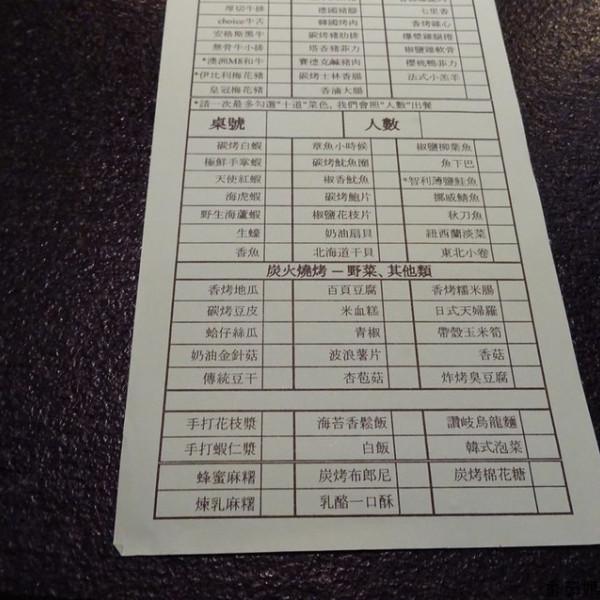 厚切牛排 德國豬腳 七里香
choice牛舌 韓國烤肉 香烤雞心
安格斯黑牛 碳烤豬肋排 爆漿雞腿捲
無骨牛小排 塔香豬菲力 椒鹽雞軟骨
*澳洲M8和牛 賽德克鹹豬肉 櫻桃鴨菲力
*伊比利梅花豬 碳烤士林香腸 法式小羔羊
皇冠梅花豬 香滷大腸
*請一次最多勾選"十道"菜色,我們會照"人數"出餐
桌號 人數
碳烤白蝦 章魚小時候 椒鹽柳葉魚
極鮮手掌蝦 碳烤魷魚圈 魚下巴
天使紅蝦 椒香魷魚 *智利薄鹽鮭魚
海虎蝦 碳烤鮑片 挪威鯖魚
野生海蘆蝦 椒鹽花枝片 秋刀魚
生蠔 奶油扇貝 紐西蘭淡菜
香魚 北海道干貝 東北小卷
炭火燒烤 – 野菜、其他類
香烤地瓜 百頁豆腐 香烤糯米腸
碳烤豆皮 米血糕 日式天婦羅
蛤仔絲瓜 青椒 帶殼玉米筍
奶油金針菇 波浪薯片 香菇
傳統豆干 杏苞菇 炸烤臭豆腐
手打花枝漿 海苔香鬆飯 讚岐烏龍麵
手打蝦仁漿 白飯 韓式泡菜
蜂蜜麻糬 炭烤布郎尼 炭烤棉花糖
煉乳麻糬 乳酪一口酥